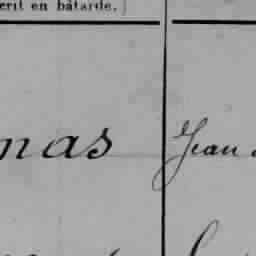 erit en bâtarde.)
nas Jean